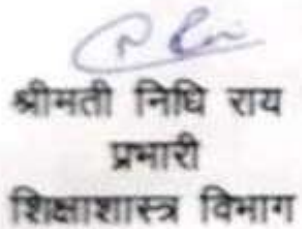 श्रीमती निधि राय
प्रभारी
शिक्षाशास्त्र विभाग